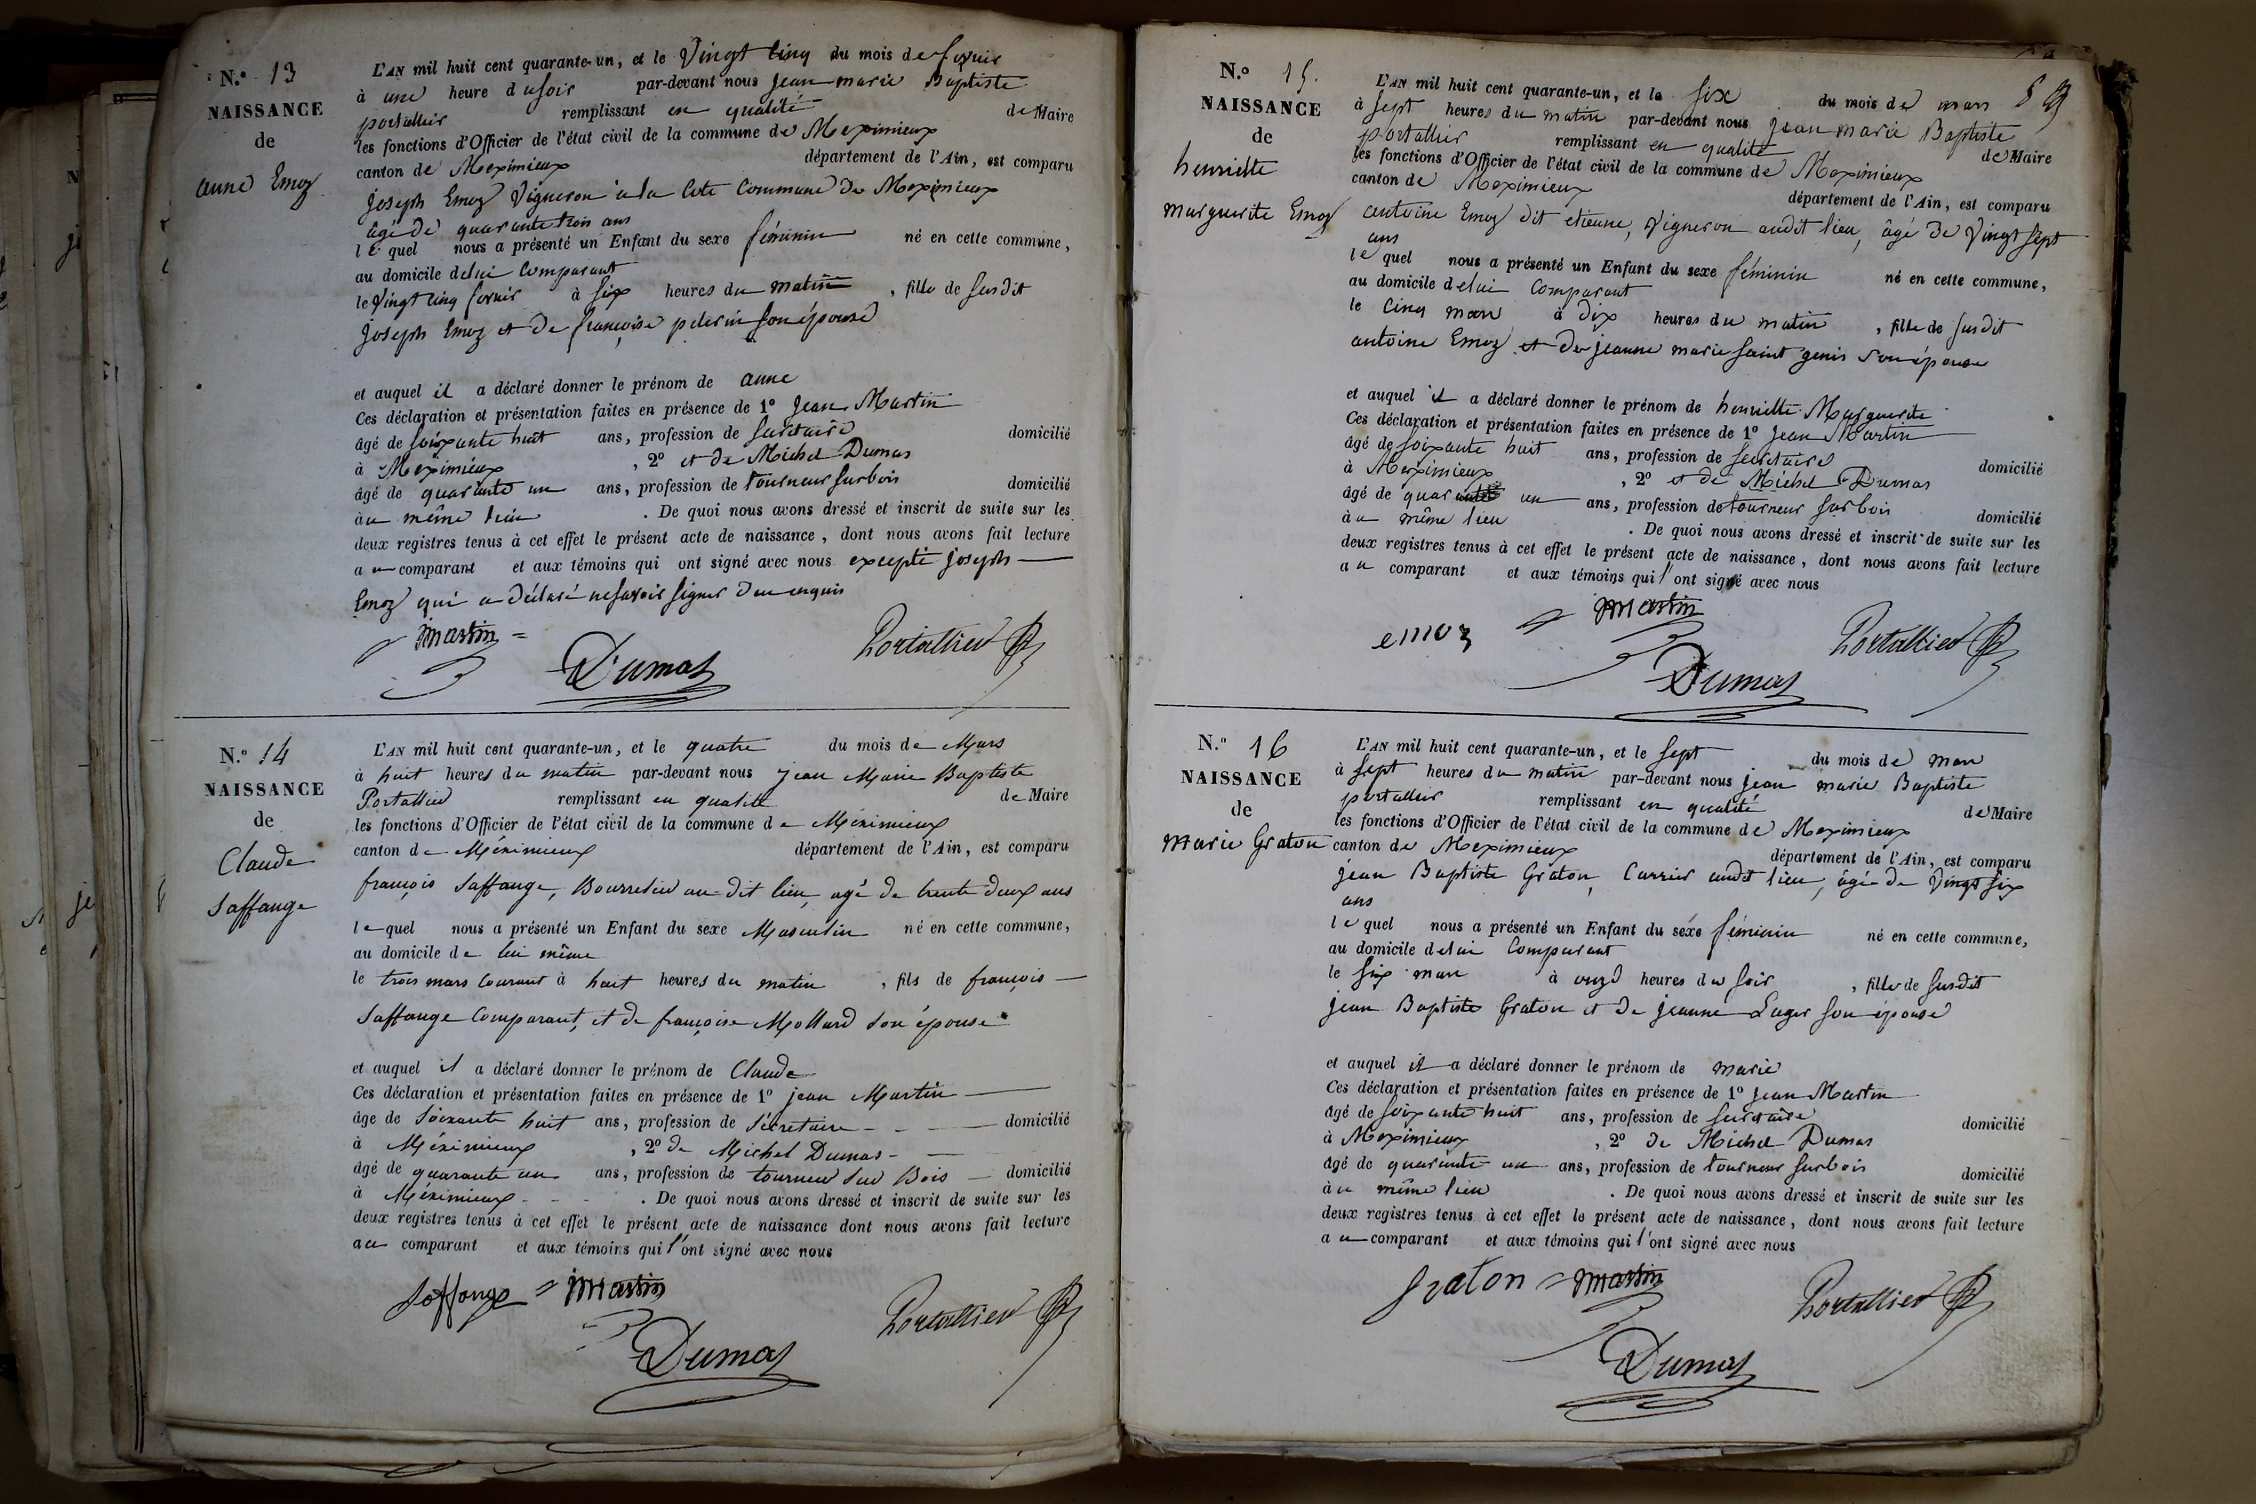 N.° 13
NAISSANCE
de
anne Emoz
L'AN mil huit cent quarante-un, et le Vingt Cinq du mois de fevrier
à une heure du soir par-devant nous jean marie Baptiste
portallier remplissant en qualité de Maire
les fonctions d'Officier de l'état civil de la commune de Meximieux
canton de Meximieux département de l'Ain, est comparu
joseph Emoz Vigneron à la Cote Commune de Meximieux
âgé de quarante trois ans
le quel nous a présenté un Enfant du sexe féminin né en cette commune,
au domicile de lui Comparant
le Vingt cinq fevrier à six heures du matin, fille de susdit
joseph Emoz et de françoise pelerin son épouse
et auquel il a déclaré donner le prénom de anne
Ces déclaration et présentation faites en présence de 1° jean Martin
âgé de soixante huit ans, profession de secretaire domicilié
à Meximieux, 2° et de Michel Dumas
âgé de quarante un ans, profession de tourneur sur bois domicilié
au même lieu. De quoi nous avons dressé et inscrit de suite sur les
deux registres tenus à cet effet le présent acte de naissance, dont nous avons fait lecture
au comparant et aux témoins qui ont signé avec nous excepté joseph
Emoz qui a déclaré ne savoir signer de ce enquis
martin
Dumas
Portallier
N.° 14
NAISSANCE
de
Claude
Saffange
L'AN mil huit cent quarante-un, et le quatre du mois de Mars
à huit heures du matin par-devant nous jean Marie Baptiste
Portallier remplissant en qualité de Maire
les fonctions d'Officier de l'état civil de la commune de Méximieux
canton de Méximieux département de l'Ain, est comparu
françois Saffange, Bourrelier au dit lieu, agé de trente deux ans
le quel nous a présenté un Enfant du sexe Masculin né en cette commune,
au domicile de lui même
le trois mars Courant à huit heures du matin, fils de françois
Saffange Comparant, et de françoise Mollard son épouse
et auquel il a déclaré donner le prénom de Claude
Ces déclaration et présentation faites en présence de 1° jean Martin
âgé de Soixante huit ans, profession de Sécretaire domicilié
à Méximieux, 2° de Michel Dumas
âgé de quarante un ans, profession de tourneur sur Bois domicilié
à Méximieux. De quoi nous avons dressé et inscrit de suite sur les
deux registres tenus à cet effet le présent acte de naissance dont nous avons fait lecture
au comparant et aux témoins qui l'ont signé avec nous
Saffange martin
Dumas
Portallier
N.° 15.
NAISSANCE
de
henriette
marguerite Emoz
L'AN mil huit cent quarante-un, et le six du mois de mars 5
à sept heures du matin par-devant nous jean marie Baptiste
portallier remplissant en qualité de Maire
les fonctions d'Officier de l'état civil de la commune de Meximieux
canton de Meximieux département de l'Ain, est comparu
antoine Emoz dit etienne, Vigneron audit lieu, âgé de Vingt sept
ans
le quel nous a présenté un Enfant du sexe féminin né en cette commune,
au domicile de lui Comparant
le cinq mars à dix heures du matin, fille de susdit
antoine Emoz et de jeanne marie saint genis son épouse
et auquel il a déclaré donner le prénom de henriette Marguerite
Ces déclaration et présentation faites en présence de 1° jean Martin
âgé de soixante huit ans, profession de secretaire domicilié
à Meximieux, 2° et de Michel Dumas
âgé de quarante un ans, profession de tourneur sur bois domicilié
au même lieu. De quoi nous avons dressé et inscrit de suite sur les
deux registres tenus à cet effet le présent acte de naissance, dont nous avons fait lecture
au comparant et aux témoins qui l'ont signé avec nous
emoz martin
Dumas
Portallier
N.° 16
NAISSANCE
de
marie Graton
L'AN mil huit cent quarante-un, et le sept du mois de mars
à sept heures du matin par-devant nous jean marie Baptiste
portallier remplissant en qualité de Maire
les fonctions d'Officier de l'état civil de la commune de Meximieux
canton de Meximieux département de l'Ain, est comparu
jean Baptiste Graton, Carrier audit lieu, âgé de Vingt six
ans
le quel nous a présenté un Enfant du sexe féminin né en cette commune,
au domicile de lui Comparant
le six mars à onze heures du soir, fille de susdit
jean Baptiste Graton et de jeanne Luger son épouse
et auquel il a déclaré donner le prénom de marie
Ces déclaration et présentation faites en présence de 1° jean Martin
âgé de soixante huit ans, profession de secretaire domicilié
à Meximieux, 2° de Michel Dumas
âgé de quarante un ans, profession de tourneur sur bois domicilié
au même lieu. De quoi nous avons dressé et inscrit de suite sur les
deux registres tenus à cet effet le présent acte de naissance, dont nous avons fait lecture
au comparant et aux témoins qui l'ont signé avec nous
graton martin
Dumas
Portallier